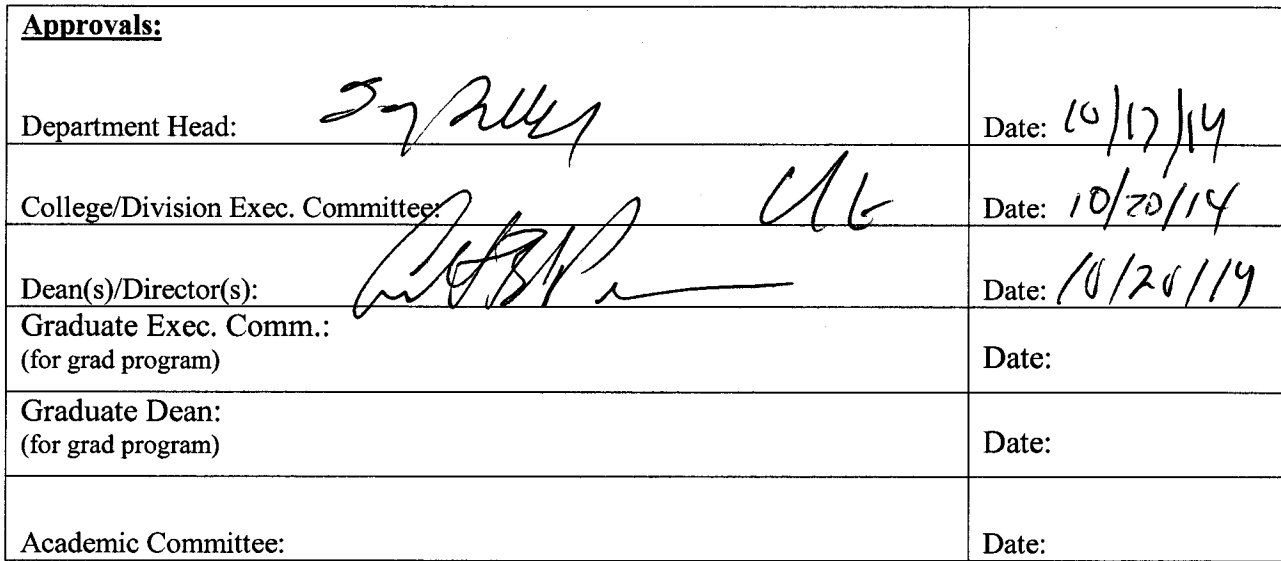 Approvals:
Department Head: Date: 10/17/14
College/Division Exec. Committee: Date: 10/20/14
Dean(s)/Director(s): Date: 10/20/14
Graduate Exec. Comm.:
(for grad program) Date:
Graduate Dean:
(for grad program) Date:
Academic Committee: Date: